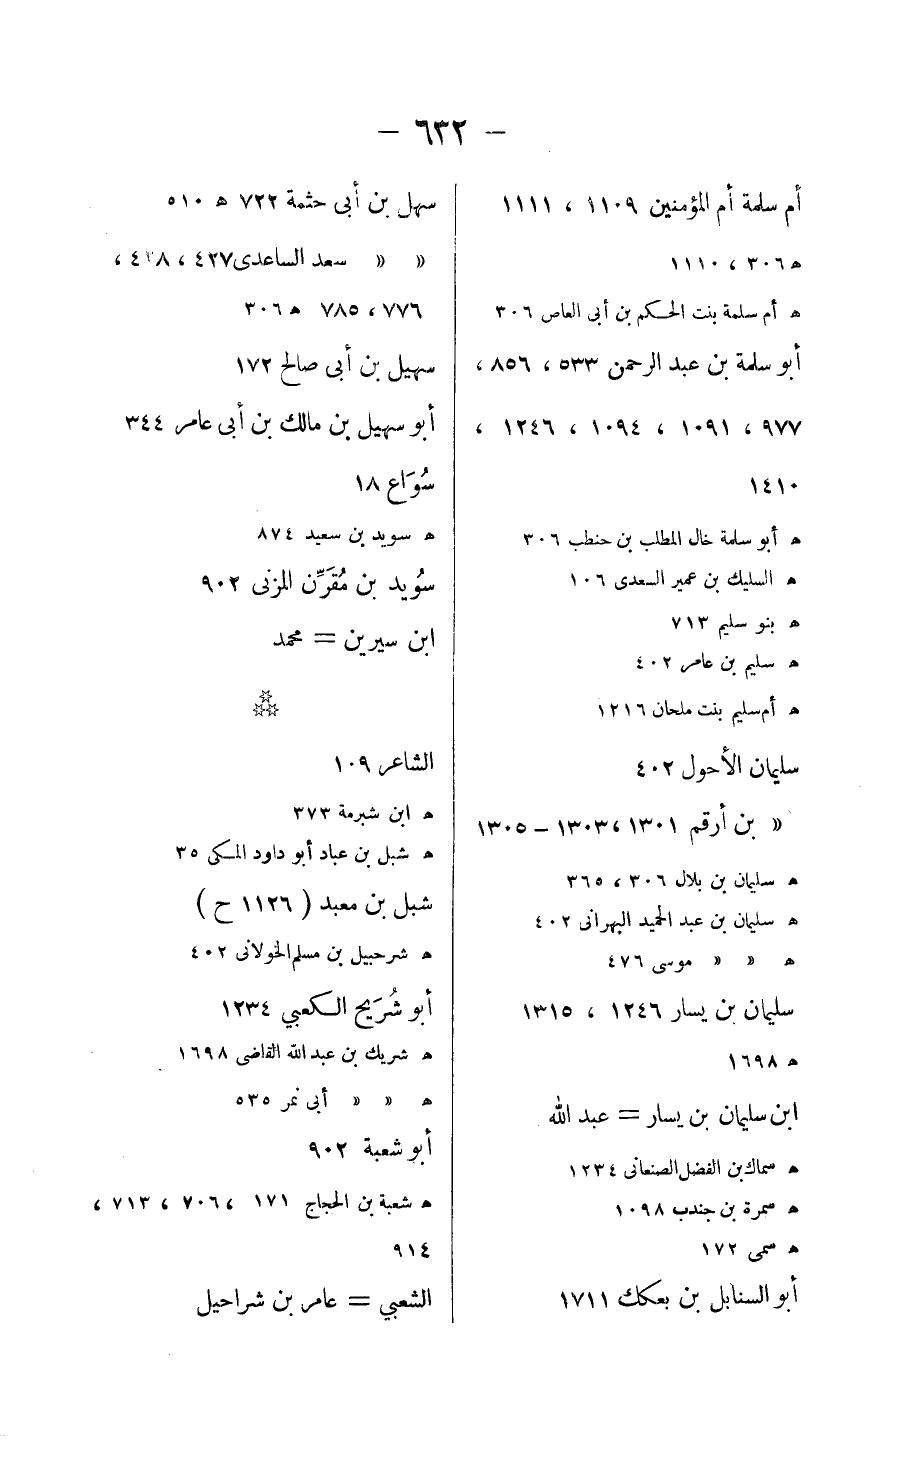 — ٦٣٢ —
أم سلمة أم المؤمنين ١١٠٩ ، ١١١١
ﻫ ٣٠٦ ، ١١١٠
ﻫ أم سلمة بنت الحكم بن أبى العاص ٣٠٦
أبو سلمة بن عبد الرحمن ٥٣٣ ، ٨٥٦ ،
٩٧٧ ، ١٠٩١ ، ١٠٩٤ ، ١٢٤٦ ،
١٤١٠
ﻫ أبو سلمة خال المطلب بن حنطب ٣٠٦
ﻫ السليك بن عمير السعدى ١٠٦
ﻫ بنو سليم ٧١٣
ﻫ سليم بن عامر ٤٠٢
ﻫ أم سليم بنت ملحان ١٢١٦
سليمان الأحول ٤٠٢
« بن أرقم ١٣٠١ ، ١٣٠٣ – ١٣٠٥
ﻫ سليمان بن بلال ٣٠٦ ، ٣٦٥
ﻫ سليمان بن عبد الحميد البهرانى ٤٠٢
ﻫ « « موسى ٤٧٦
سليمان بن يسار ١٢٤٦ ، ١٣١٥
ﻫ ١٦٩٨
ابن سليمان بن يسار = عبد الله
ﻫ سماك بن الفضل الصنعانى ١٢٣٤
ﻫ سمرة بن جندب ١٠٩٨
ﻫ سمى ١٧٢
أبو السنابل بن بعكك ١٧١١
سهل بن أبى حثمة ٧٢٢ ﻫ ٥١٠
« « سعد الساعدى ٤٢٧ ، ٤٢٨ ،
٧٧٦ ، ٧٨٥ ﻫ ٣٠٦
سهيل بن أبى صالح ١٧٢
أبو سهيل بن مالك بن أبى عامر ٣٤٤
سُوَاع ١٨
ﻫ سويد بن سعيد ٨٧٤
سُويد بن مُقَرِّن المزنى ٩٠٢
ابن سيرين = محمد
الشاعر ١٠٩
ﻫ ابن شبرمة ٣٧٣
ﻫ شبل بن عباد أبو داود المكى ٣٥
شبل بن معبد ( ١١٢٦ ح )
ﻫ شرحبيل بن مسلم الخولانى ٤٠٢
أبو شُرَيح الكعبي ١٢٣٤
ﻫ شريك بن عبد الله القاضى ١٦٩٨
ﻫ « « أبى نمر ٥٣٥
أبو شعبة ٩٠٢
ﻫ شعبة بن الحجاج ١٧١ ، ٧٠٦ ، ٧١٣ ،
٩١٤
الشعبي = عامر بن شراحيل